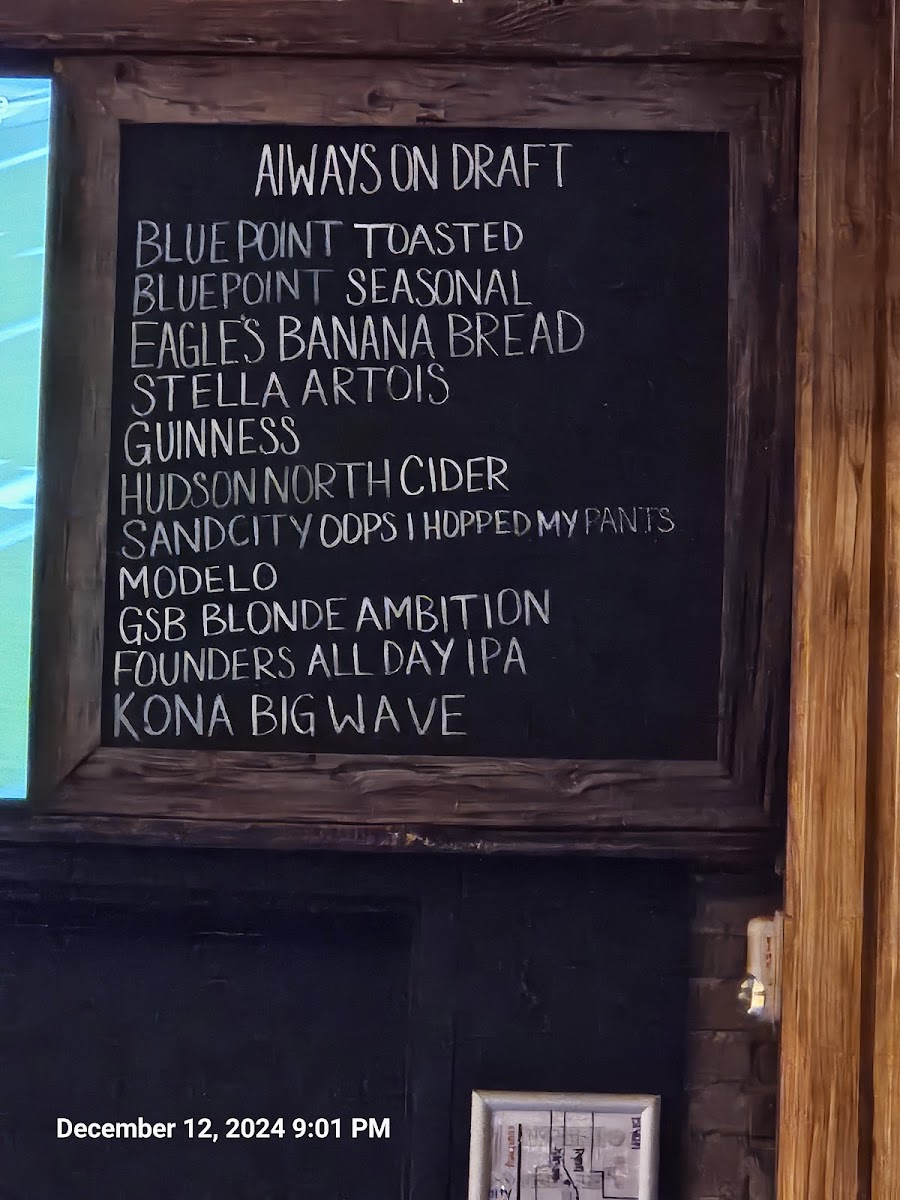 AlWAYS ON DRAFT
BLUEPOINT TOASTED
BLUEPOINT SEASONAL
EAGLE'S BANANA BREAD
STELLA ARTOIS
GUINNESS
HUDSON NORTH CIDER
SANDCITY OOPS I HOPPED MY PANTS
MODELO
GSB BLONDE AMBITION
FOUNDERS ALL DAY IPA
KONA BIG WAVE
December 12, 2024 9:01 PM